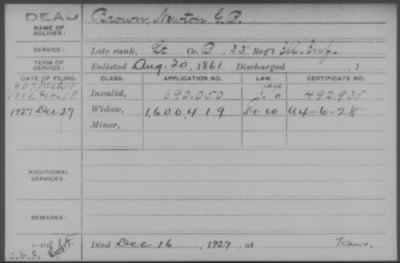 DEAD
NAME OF SOLDIER: Brown, Newton G. B.
SERVICE: Late rank, Co. B 33 Reg't Ill. Inf.
TERM OF SERVICE: Enlisted Aug. 20, 1861 Discharged , 1
DATE OF FILING. CLASS. APPLICATION NO. LAW. CERTIFICATE NO.
Invalid, 690,050 492,935
1927 Dec 27 Widow, 1,600,419 A-4-6-28
Minor,
ADDITIONAL SERVICES:
REMARKS:
Died Dec 16, 1927, at Kans.